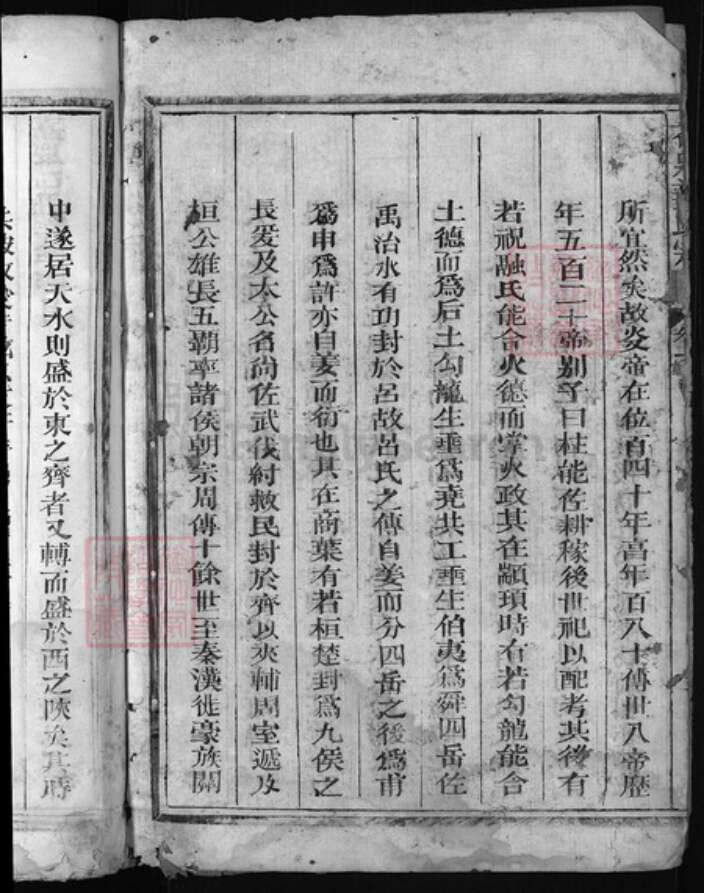 所宜然矣故炎帝在位百四十年高年百八十傳世八帝歷
年五百二十帝別子曰柱能佐耕稼後世祀以配考其後有
若祝融氏能合火德而掌火政其在顓頊時有若勾龍能合
土德而為后土勾龍生垂為堯共工垂生伯夷為舜四岳佐
禹治水有功封於呂故呂氏之傳自姜而分四岳之後為甫
為申為許亦自姜而衍也其在商葉有若桓楚封為九侯之
長爰及太公名尚佐武伐紂救民封於齊以夾輔周室遞及
桓公雄長五覇率諸侯朝宗周傳十餘世至秦漢徙豪族關
中遂居天水則盛於東之齊者又轉而盛於西之陝矣其時